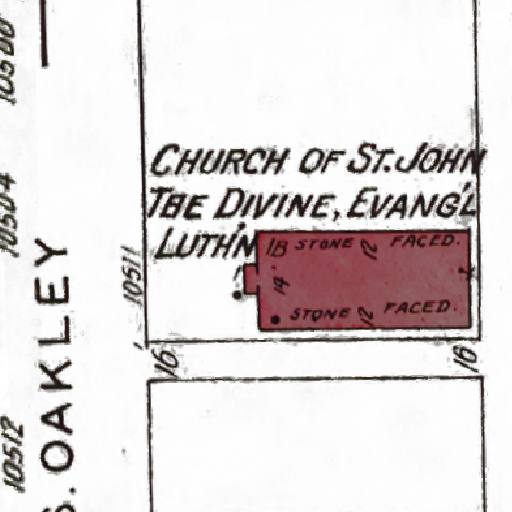 10500
10504
10512
S. OAKLEY
10511
CHURCH OF ST. JOHN
THE DIVINE, EVANG'L
LUTH'N
18 STONE 12 FACED.
14
STONE 12 FACED.
16
16